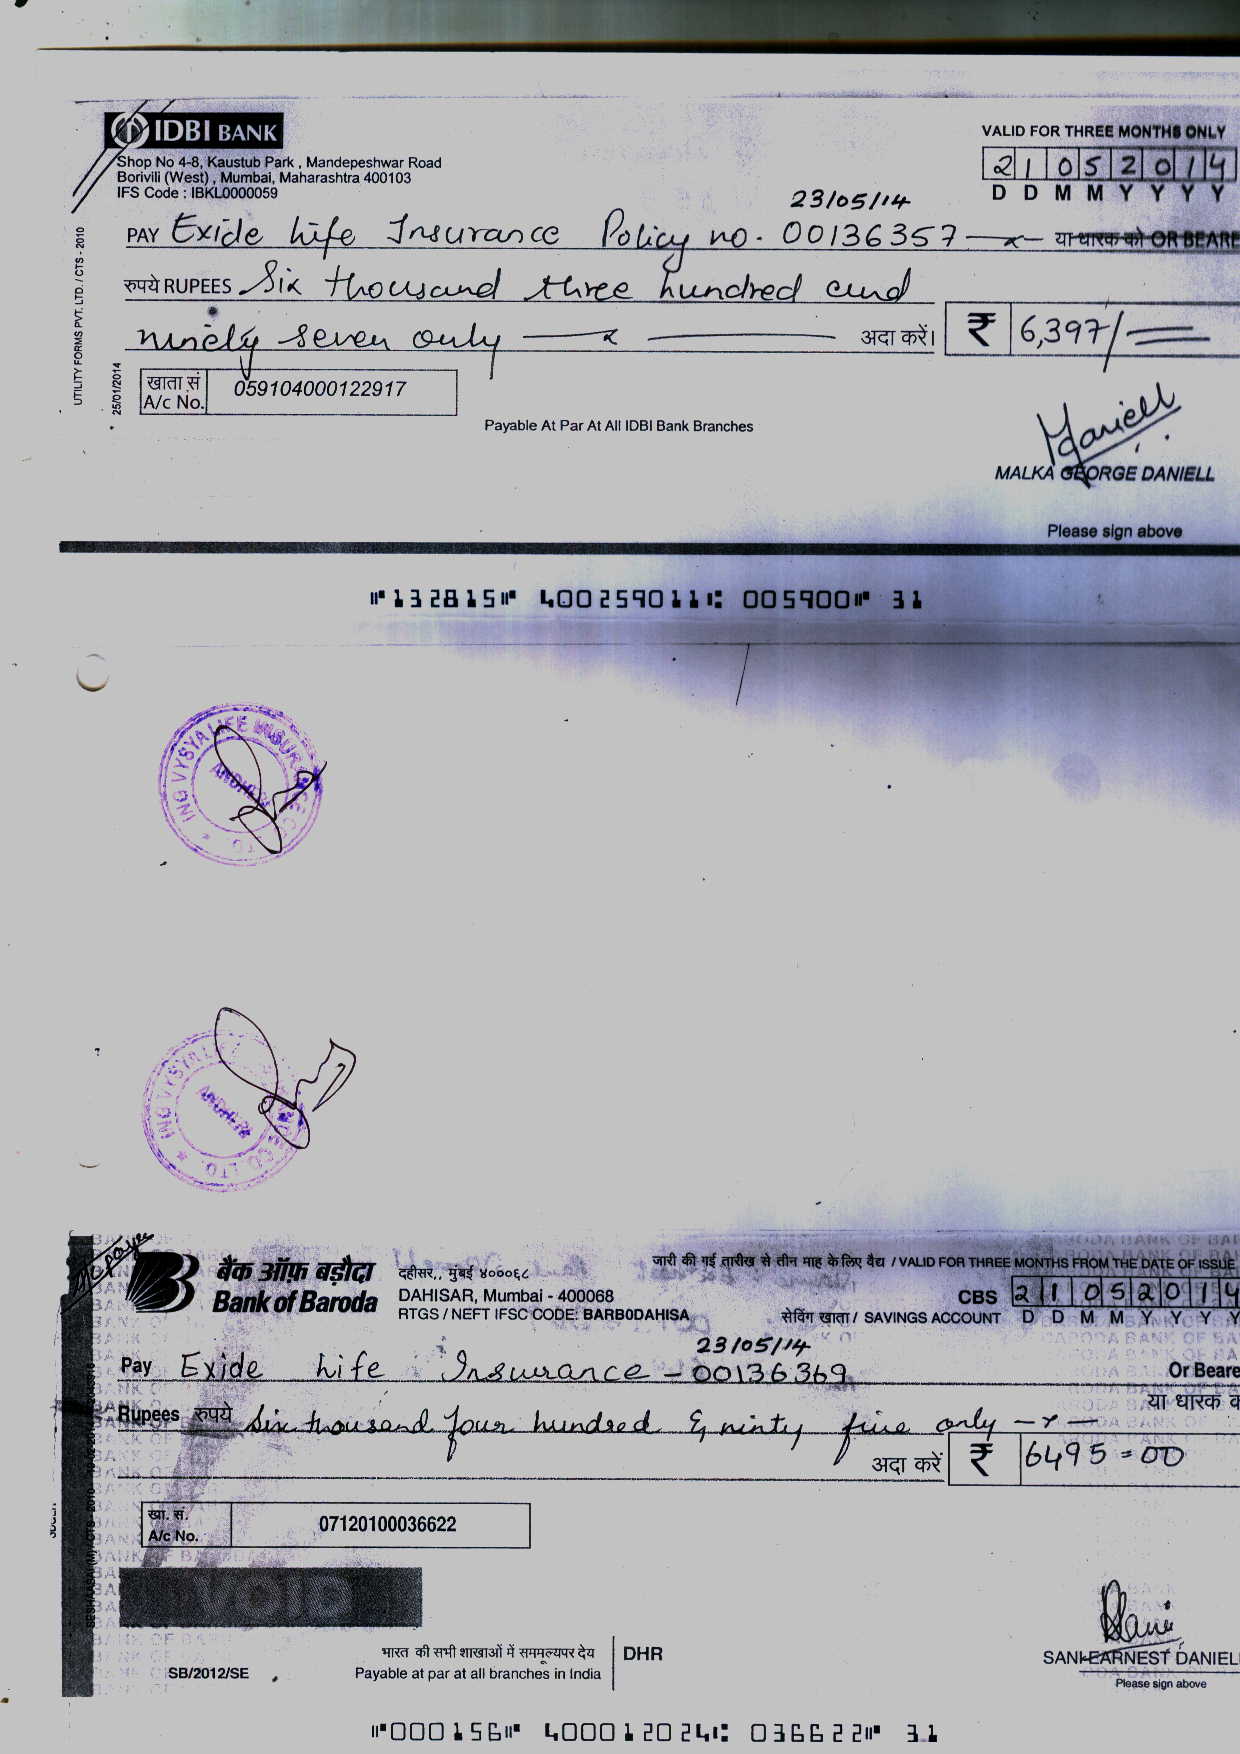 IDBI BANK
Shop No 4-8, Kaustub Park , Mandepeshwar Road
Borivili (West) , Mumbai, Maharashtra 400103
IFS Code : IBKL0000059
VALID FOR THREE MONTHS ONLY
2 1 0 5 2 0 1 4
D D M M Y Y Y Y
23/05/14
PAY Exide Life Insurance Policy no. 00136357 —x— या धारक को OR BEARE
रुपये RUPEES Six thousand three hundred and
ninety seven only —x— अदा करें। ₹ 6,397/=
UTILITY FORMS PVT. LTD. / CTS - 2010
25/01/2014
खाता सं
A/c No. 059104000122917
Payable At Par At All IDBI Bank Branches
MALKA GEORGE DANIELL
Please sign above
⑈132815⑈ 400259011⑆ 005900⑈ 31
ING VYSYA LIFE INSURANCE CO. LTD.
ANDHERI
ING VYSYA LIFE INSURANCE CO. LTD.
ANDHERI
बैंक ऑफ़ बड़ौदा
Bank of Baroda
दहीसर,, मुंबई ४०००६८
DAHISAR, Mumbai - 400068
RTGS / NEFT IFSC CODE: BARB0DAHISA
जारी की गई तारीख से तीन माह के लिए वैद्य / VALID FOR THREE MONTHS FROM THE DATE OF ISSUE
CBS 2 1 0 5 2 0 1 4
सेविंग खाता / SAVINGS ACCOUNT D D M M Y Y Y Y
23/05/14
Pay Exide Life Insurance - 00136369 Or Beare
या धारक क
Rupees रुपये Six thousand four hundred & ninty five only —x—
अदा करें ₹ 6495=00
खा. सं.
A/c No. 07120100036622
VOID
भारत की सभी शाखाओं में सममूल्यपर देय
SB/2012/SE Payable at par at all branches in India
DHR
SANI EARNEST DANIEL
Please sign above
⑈000156⑈ 400012024⑆ 036622⑈ 31